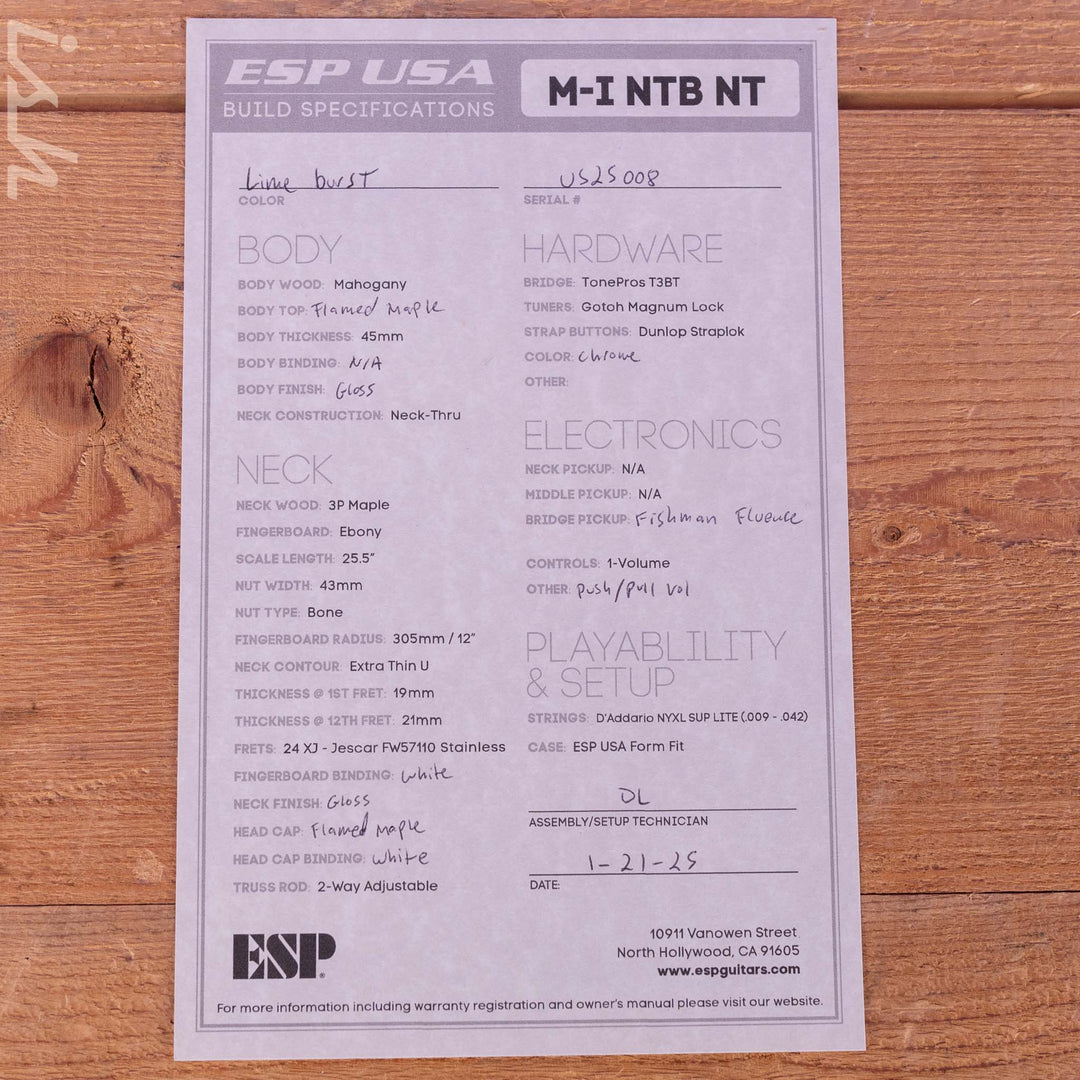 ish
ESP USA
BUILD SPECIFICATIONS
M-I NTB NT
Lime burst
COLOR
US25008
SERIAL #
BODY
BODY WOOD: Mahogany
BODY TOP: Flamed Maple
BODY THICKNESS: 45mm
BODY BINDING: N/A
BODY FINISH: Gloss
NECK CONSTRUCTION: Neck-Thru
NECK
NECK WOOD: 3P Maple
FINGERBOARD: Ebony
SCALE LENGTH: 25.5"
NUT WIDTH: 43mm
NUT TYPE: Bone
FINGERBOARD RADIUS: 305mm / 12"
NECK CONTOUR: Extra Thin U
THICKNESS @ 1ST FRET: 19mm
THICKNESS @ 12TH FRET: 21mm
FRETS: 24 XJ - Jescar FW57110 Stainless
FINGERBOARD BINDING: white
NECK FINISH: Gloss
HEAD CAP: Flamed maple
HEAD CAP BINDING: white
TRUSS ROD: 2-Way Adjustable
HARDWARE
BRIDGE: TonePros T3BT
TUNERS: Gotoh Magnum Lock
STRAP BUTTONS: Dunlop Straplok
COLOR: chrome
OTHER:
ELECTRONICS
NECK PICKUP: N/A
MIDDLE PICKUP: N/A
BRIDGE PICKUP: Fishman Fluence
CONTROLS: 1-Volume
OTHER: push/pull vol
PLAYABLILITY
& SETUP
STRINGS: D'Addario NYXL SUP LITE (.009 - .042)
CASE: ESP USA Form Fit
DL
ASSEMBLY/SETUP TECHNICIAN
1-21-25
DATE:
ESP®
10911 Vanowen Street
North Hollywood, CA 91605
www.espguitars.com
For more information including warranty registration and owner's manual please visit our website.